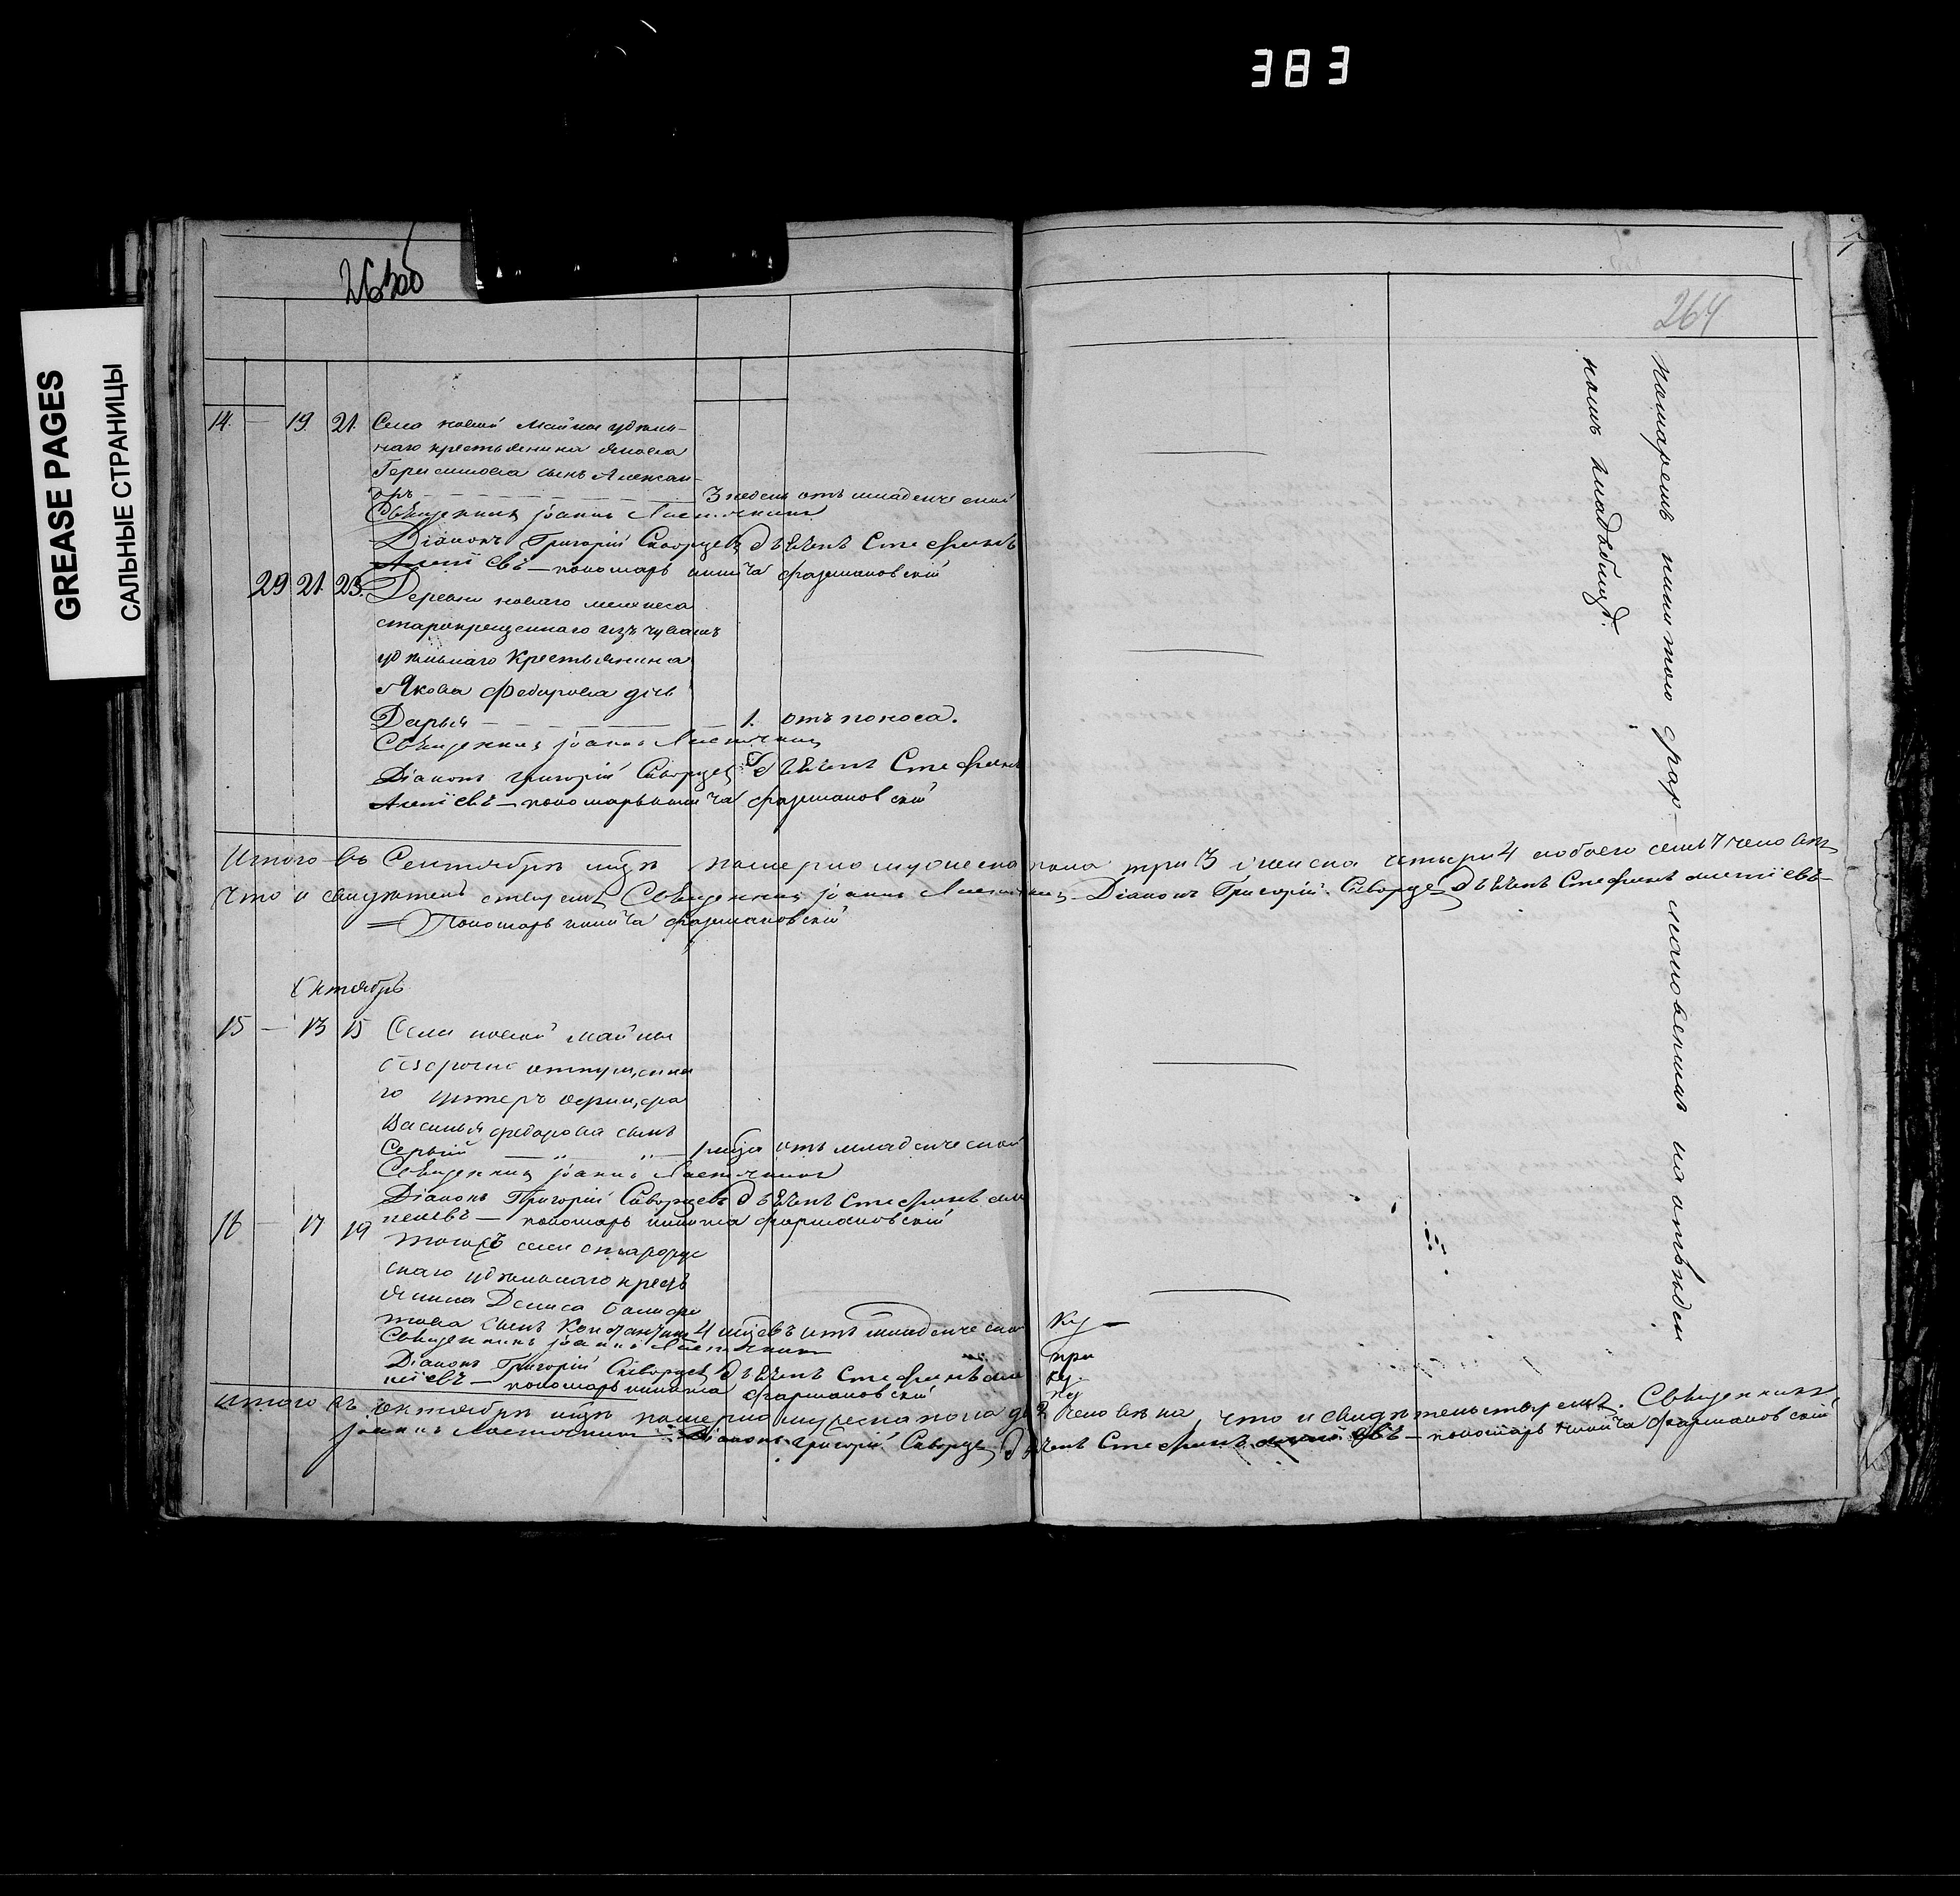 383
GREASE PAGES
САЛЬНЫЕ СТРАНИЦЫ
263об
264
14. — 19. 21. Села новой Майны удѣль-
наго крестьянина Якова
Герасимова сынъ Алексан-
дръ — 3 недель отъ младенческой
Священникъ Іоаннъ Ласточкинъ
Діаконъ Григорій Скворцевъ дьячекъ Стефанъ
— пономарь Никита Фармаковскій
29 21. 23. Деревни новаго
старокрещеннаго изъ чувашъ
удѣльнаго Крестьянина
Якова Федорова дочь
Дарья — 1. отъ поноса.
Священникъ Іоаннъ Ласточкинъ
Діаконъ Григорій Скворцевъ дьячекъ Стефанъ
— пономарь Никита Фармаковскій
Итого въ Сентябрѣ мцѣ померло мужеска пола три 3 женска четыри 4 обоего семь 7 человекъ
Что и свидѣтельствуемъ Священникъ Іоаннъ Ласточкинъ Діаконъ Григорій Скворцевъ дьячекъ Стефанъ
= Пономарь Никита Фармаковскій
Октябрь
15 — 13 15 Села новой Майны
безсрочно отпущенна
го унтеръ офицера
Василья Федорова сынъ
Сергій — 1 мца отъ младенческой
Священникъ Іоаннъ Ласточкинъ
Діаконъ Григорій Скворцевъ дьячекъ Стефанъ
— пономарь Никита Фармаковскій
16 — 17 19 тогожъ села
удѣльнаго крестъ
янина Дениса
сынъ Константинъ 4 мцевъ отъ младенческой
Священникъ Іоаннъ Ласточкинъ
Діаконъ Григорій Скворцевъ дьячекъ Стефанъ
— пономарь Никита Фармаковскій
Итого въ октябрѣ мцѣ померло мужеска пола 2 человѣка, что и свидѣтельствуемъ. Священникъ
Іоаннъ Ласточкинъ — Діаконъ Григорій Скворцевъ дьячекъ Стефанъ — пономарь Никита Фармаковскій
пономаремъ Никитою Фармаковскимъ на отъведен
номъ кладбищѣ.